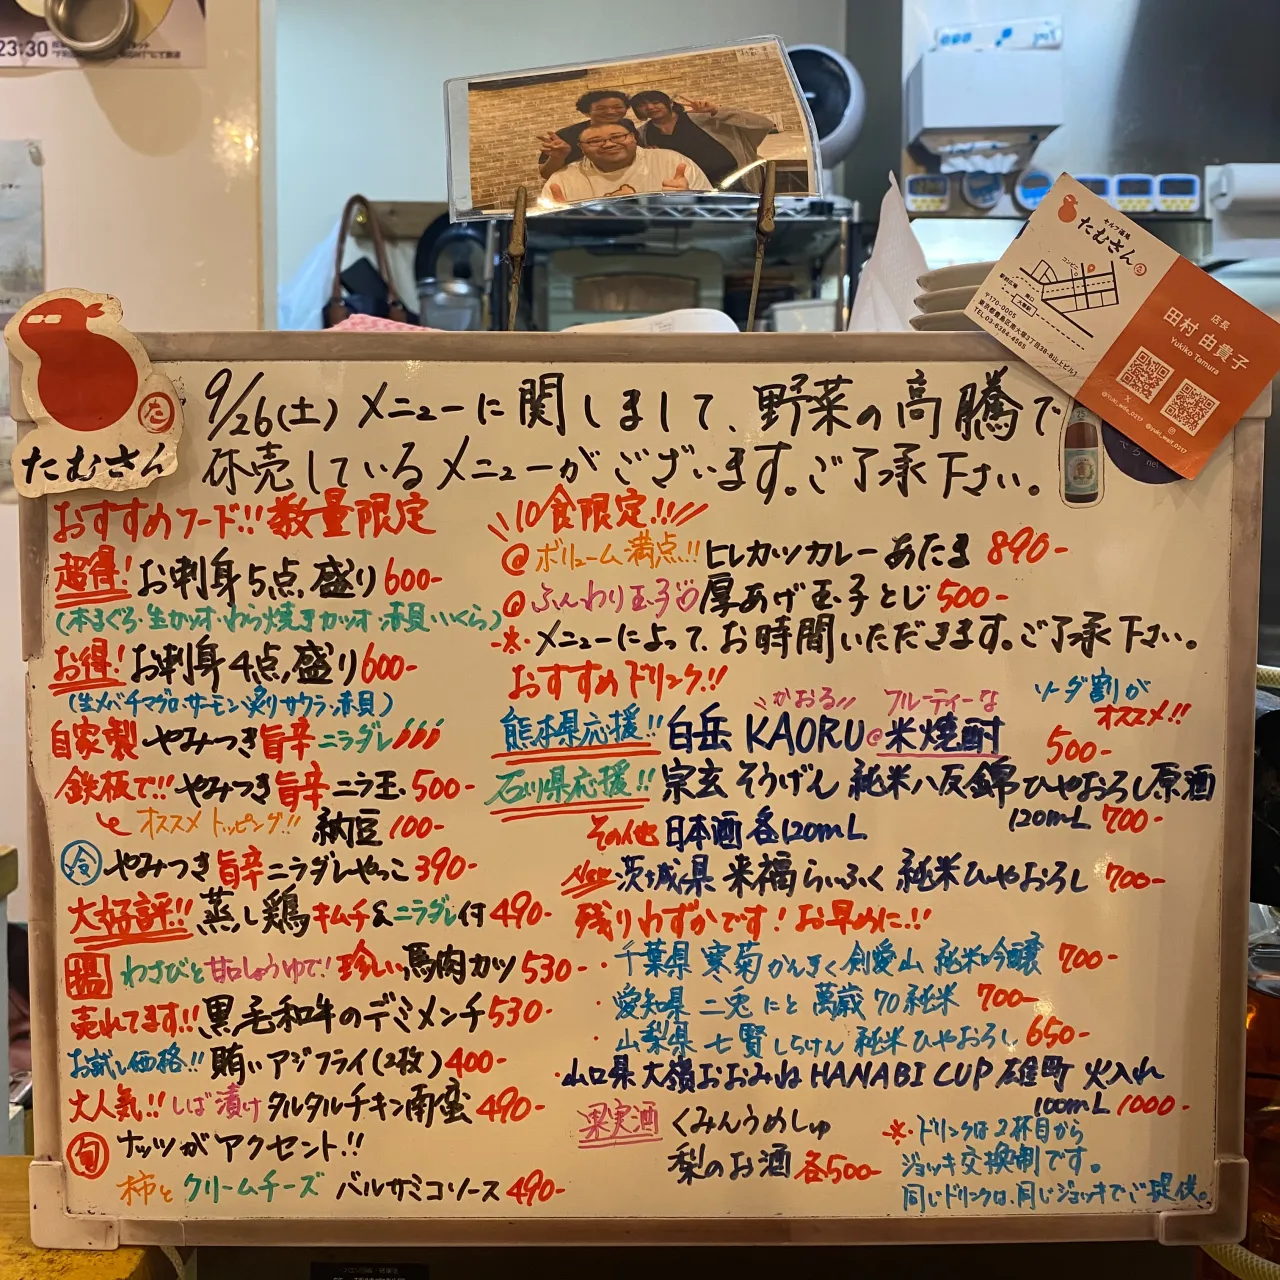 23:30
たむさん
セルフ酒場
たむさん
〒170-0005
TEL.03-6384-4565
店長
田村 由貴子
Yukiko Tamura
9/26(土) メニューに関しまして、野菜の高騰で
休売しているメニューがございます。ご了承下さい。
おすすめフード!! 数量限定
超得! お刺身5点盛り 600-
(本まぐろ・生カツオ・わら焼きカツオ・赤貝・いくら)
お得! お刺身4点盛り 600-
(生メバチマグロ・サーモン・炙りサワラ・赤貝)
自家製 やみつき旨辛ニラダレ
鉄板で!! やみつき旨辛ニラ玉 500-
オススメトッピング!! 納豆 100-
冷 やみつき旨辛ニラダレやっこ 390-
大好評!! 蒸し鶏キムチ&ニラダレ付 490-
揚 わさびと甘口しょうゆで! 珍しい馬肉カツ 530-
売れてます!! 黒毛和牛のデミメンチ 530-
お試し価格!! 賄いアジフライ(2枚) 400-
大人気!! しば漬けタルタルチキン南蛮 490-
旬 ナッツがアクセント!!
柿とクリームチーズ バルサミコソース 490-
\\10食限定!!!//
@ ボリューム満点!! ヒレカツカレーあたま 890-
@ ふんわり玉子 厚あげ玉子とじ 500-
※・メニューによって、お時間いただきます。ご了承下さい。
おすすめドリンク!!
かおる!! フルーティーな ソーダ割が
オススメ!!
熊本県応援!! 白岳 KAORU@米焼酎 500-
石川県応援!! 宗玄 そうげん 純米八反錦ひやおろし原酒
120mL 700-
その他 日本酒 各120mL
New 茨城県 来福らいふく 純米ひやおろし 700-
残りわずかです! お早めに!!
・千葉県 寒菊かんきく 剣愛山 純米吟醸 700-
・愛知県 二兎 にと 萬歳70純米 700-
・山梨県 七賢しちけん 純米ひやおろし 650-
・山口県 大嶺おおみね HANABI CUP 雄町 火入れ
100mL 1000-
果実酒 くみんうめしゅ
梨のお酒 各500-
※・ドリンクは2杯目から
ジョッキ交換制です。
同じドリンクは、同じジョッキでご提供。